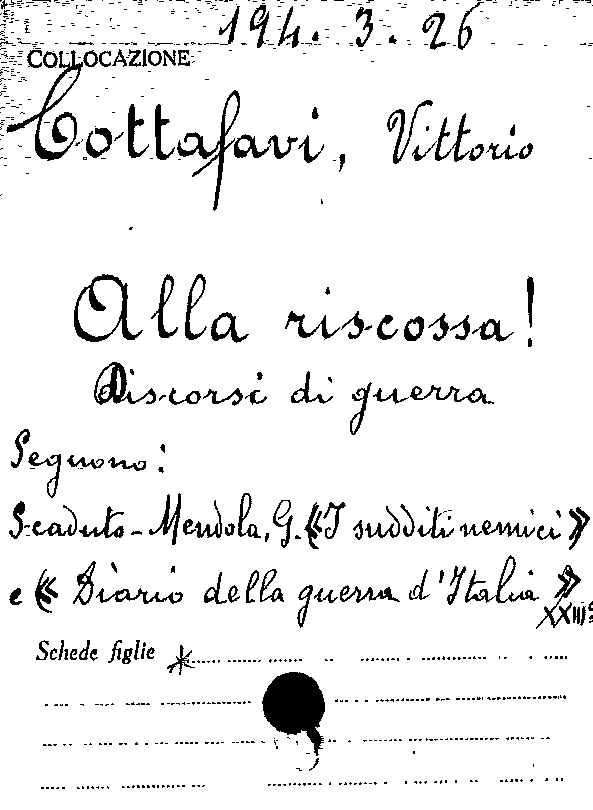 194. 3. 26
COLLOCAZIONE
Cottafavi, Vittorio
Alla riscossa!
Discorsi di guerra
Seguono:
Scaduto-Mendola, G. «I sudditi nemici»
e « Diario della guerra d'Italia »
XXIIIª
Schede figlie *